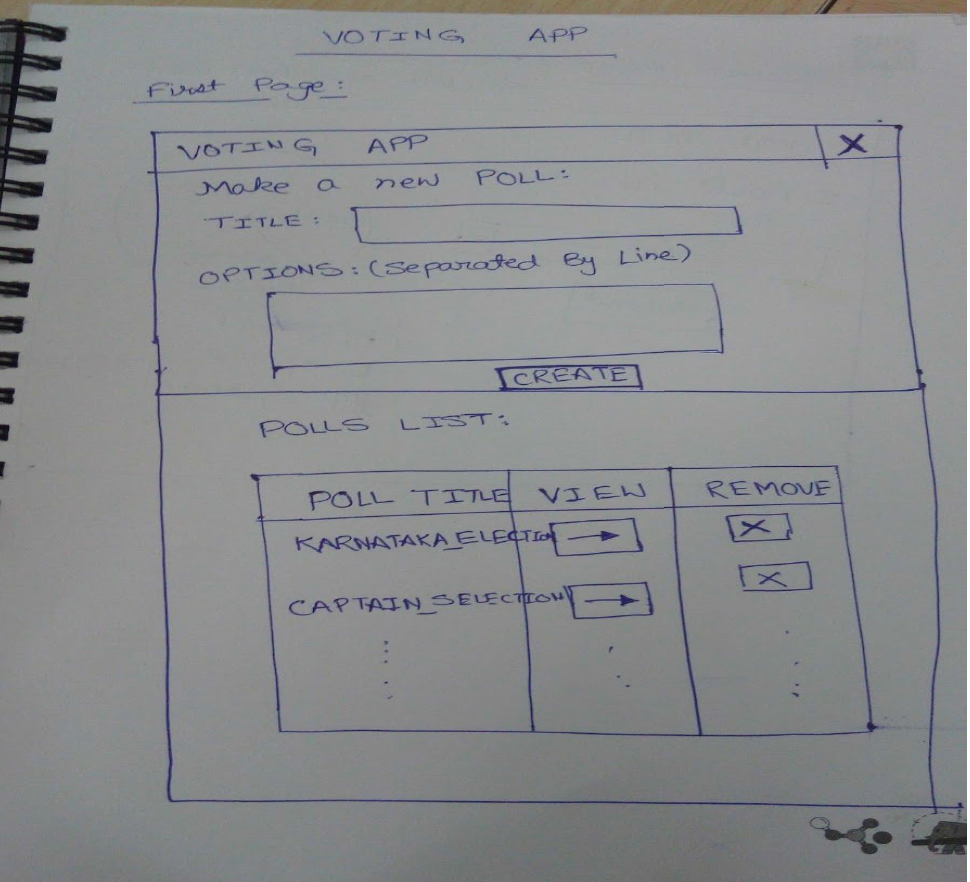 VOTING APP
First Page:
VOTING APP X
Make a new POLL:
TITLE:
OPTIONS: (Separated By Line)
CREATE
POLLS LIST:
POLL TITLE VIEW REMOVE
KARNATAKA_ELECTION → X
CAPTAIN_SELECTION → X